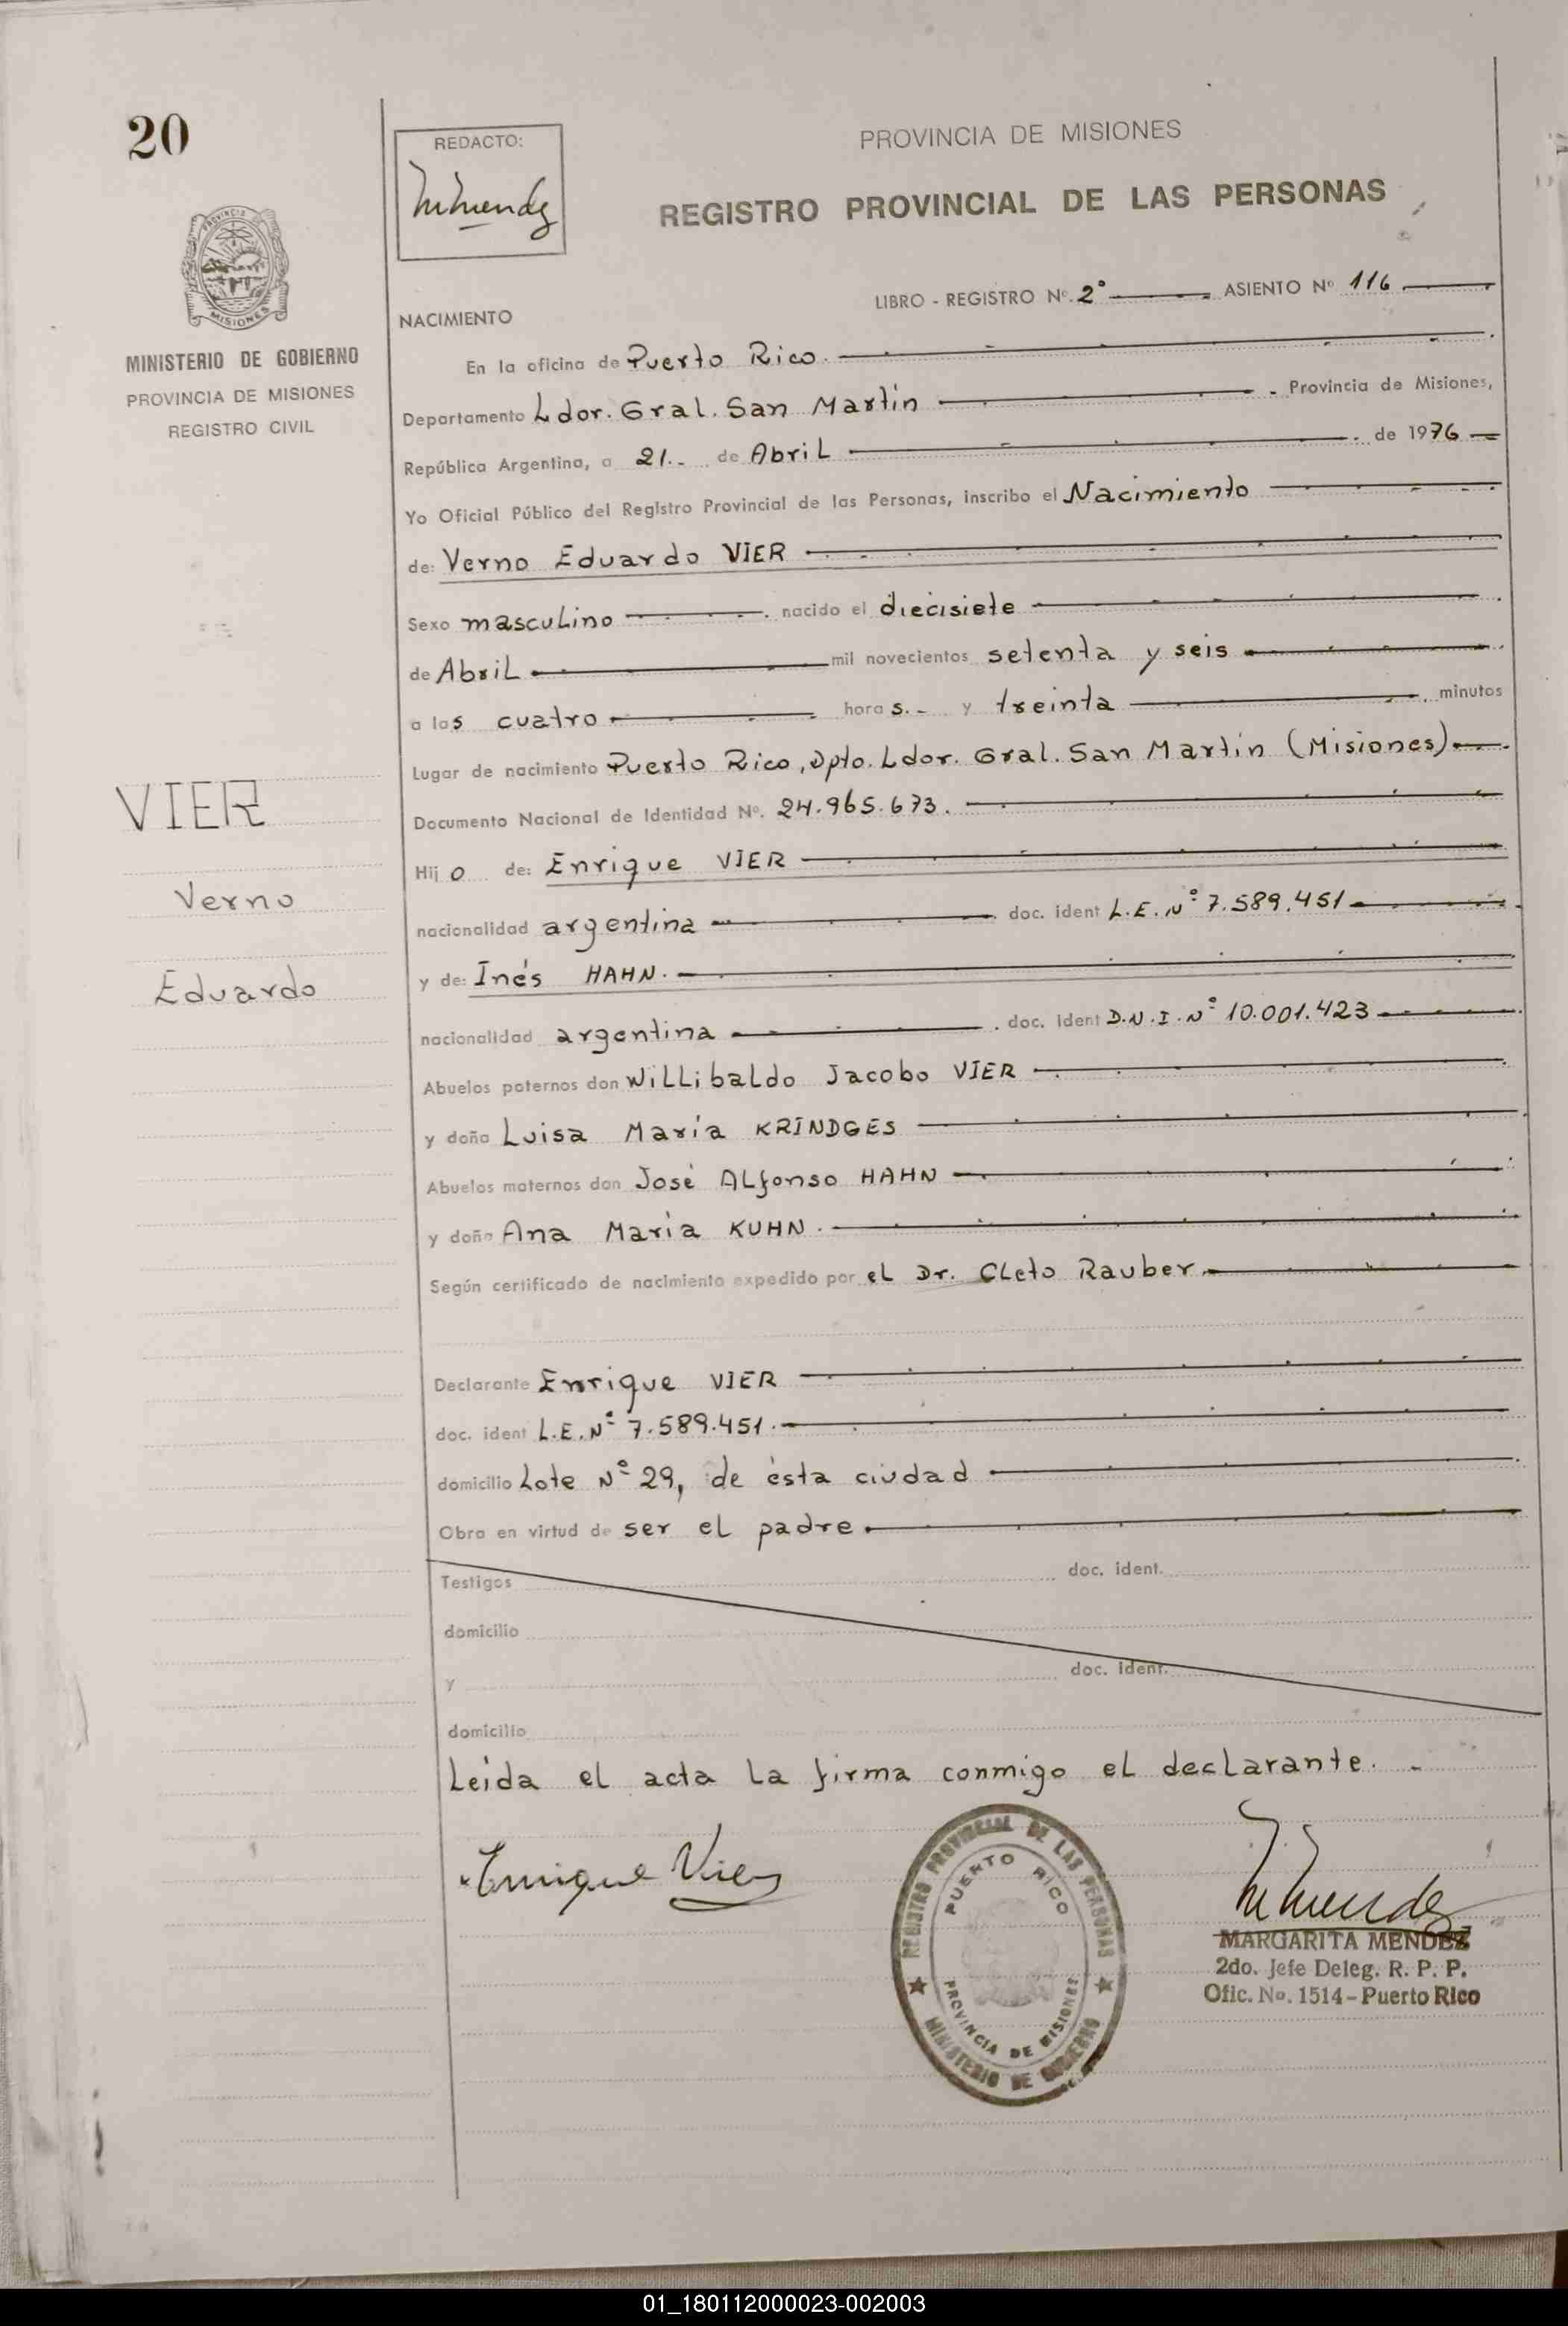 20
REDACTO:
MMendez
PROVINCIA DE MISIONES
REGISTRO PROVINCIAL DE LAS PERSONAS
PROVINCIA
MISIONES
MINISTERIO DE GOBIERNO
PROVINCIA DE MISIONES
REGISTRO CIVIL
LIBRO - REGISTRO Nº 2° ASIENTO Nº 116
NACIMIENTO
En la oficina de Puerto Rico.
Departamento Ldor. Gral. San Martín . Provincia de Misiones,
República Argentina, a 21.- de Abril . de 1976
Yo Oficial Público del Registro Provincial de las Personas, inscribo el Nacimiento
de: Verno Eduardo VIER
Sexo masculino . nacido el diecisiete
de Abril mil novecientos setenta y seis
a las cuatro horas.- y treinta . minutos
Lugar de nacimiento Puerto Rico, Dpto. Ldor. Gral. San Martín (Misiones).
Documento Nacional de Identidad Nº. 24.965.673.
Hijo de: Enrique VIER
nacionalidad argentina . doc. ident L.E. Nº 7.589.451
y de: Inés HAHN.
nacionalidad argentina . doc. ident D.N.I. Nº 10.001.423
Abuelos paternos don Willibaldo Jacobo VIER
y doña Luisa María KRINDGES
Abuelos maternos don José Alfonso HAHN
y doña Ana María KUHN.
Según certificado de nacimiento expedido por el Dr. Cleto Rauber.
Declarante Enrique VIER
doc. ident L.E. Nº 7.589.451.
domicilio Lote Nº 29, de ésta ciudad
Obra en virtud de ser el padre.
Testigos doc. ident.
domicilio
y doc. ident.
domicilio
Leída el acta la firma conmigo el declarante. -
VIER
Verno
Eduardo
Enrique Vier
REGISTRO PROVINCIAL DE LAS PERSONAS
PUERTO RICO
PROVINCIA DE MISIONES
MINISTERIO DE GOBIERNO
MMendez
MARGARITA MENDEZ
2do. Jefe Deleg. R. P. P.
Ofic. No. 1514-Puerto Rico
01_180112000023-002003